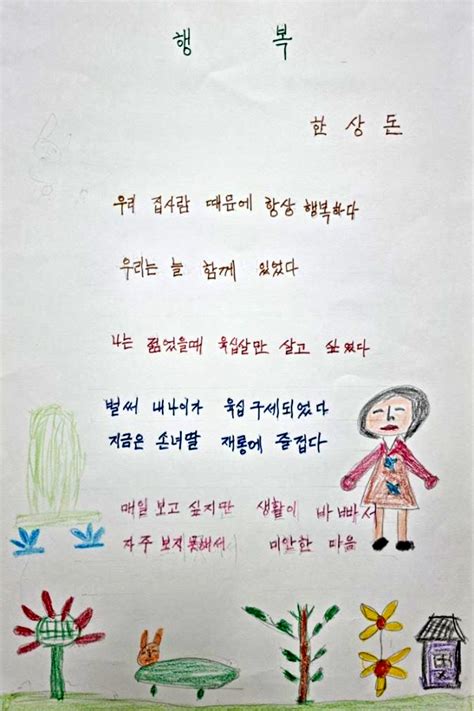 행 복
한 상 돈
우리 집사람 때문에 항상 행복하다
우리는 늘 함께 있었다
나는 젊었을때 육십살만 살고 싶었다
벌써 내나이가 육십구세되었다
지금은 손녀딸 재롱에 즐겁다
매일 보고 싶지만 생활이 바빠서
자주 보지못해서 미안한 마음